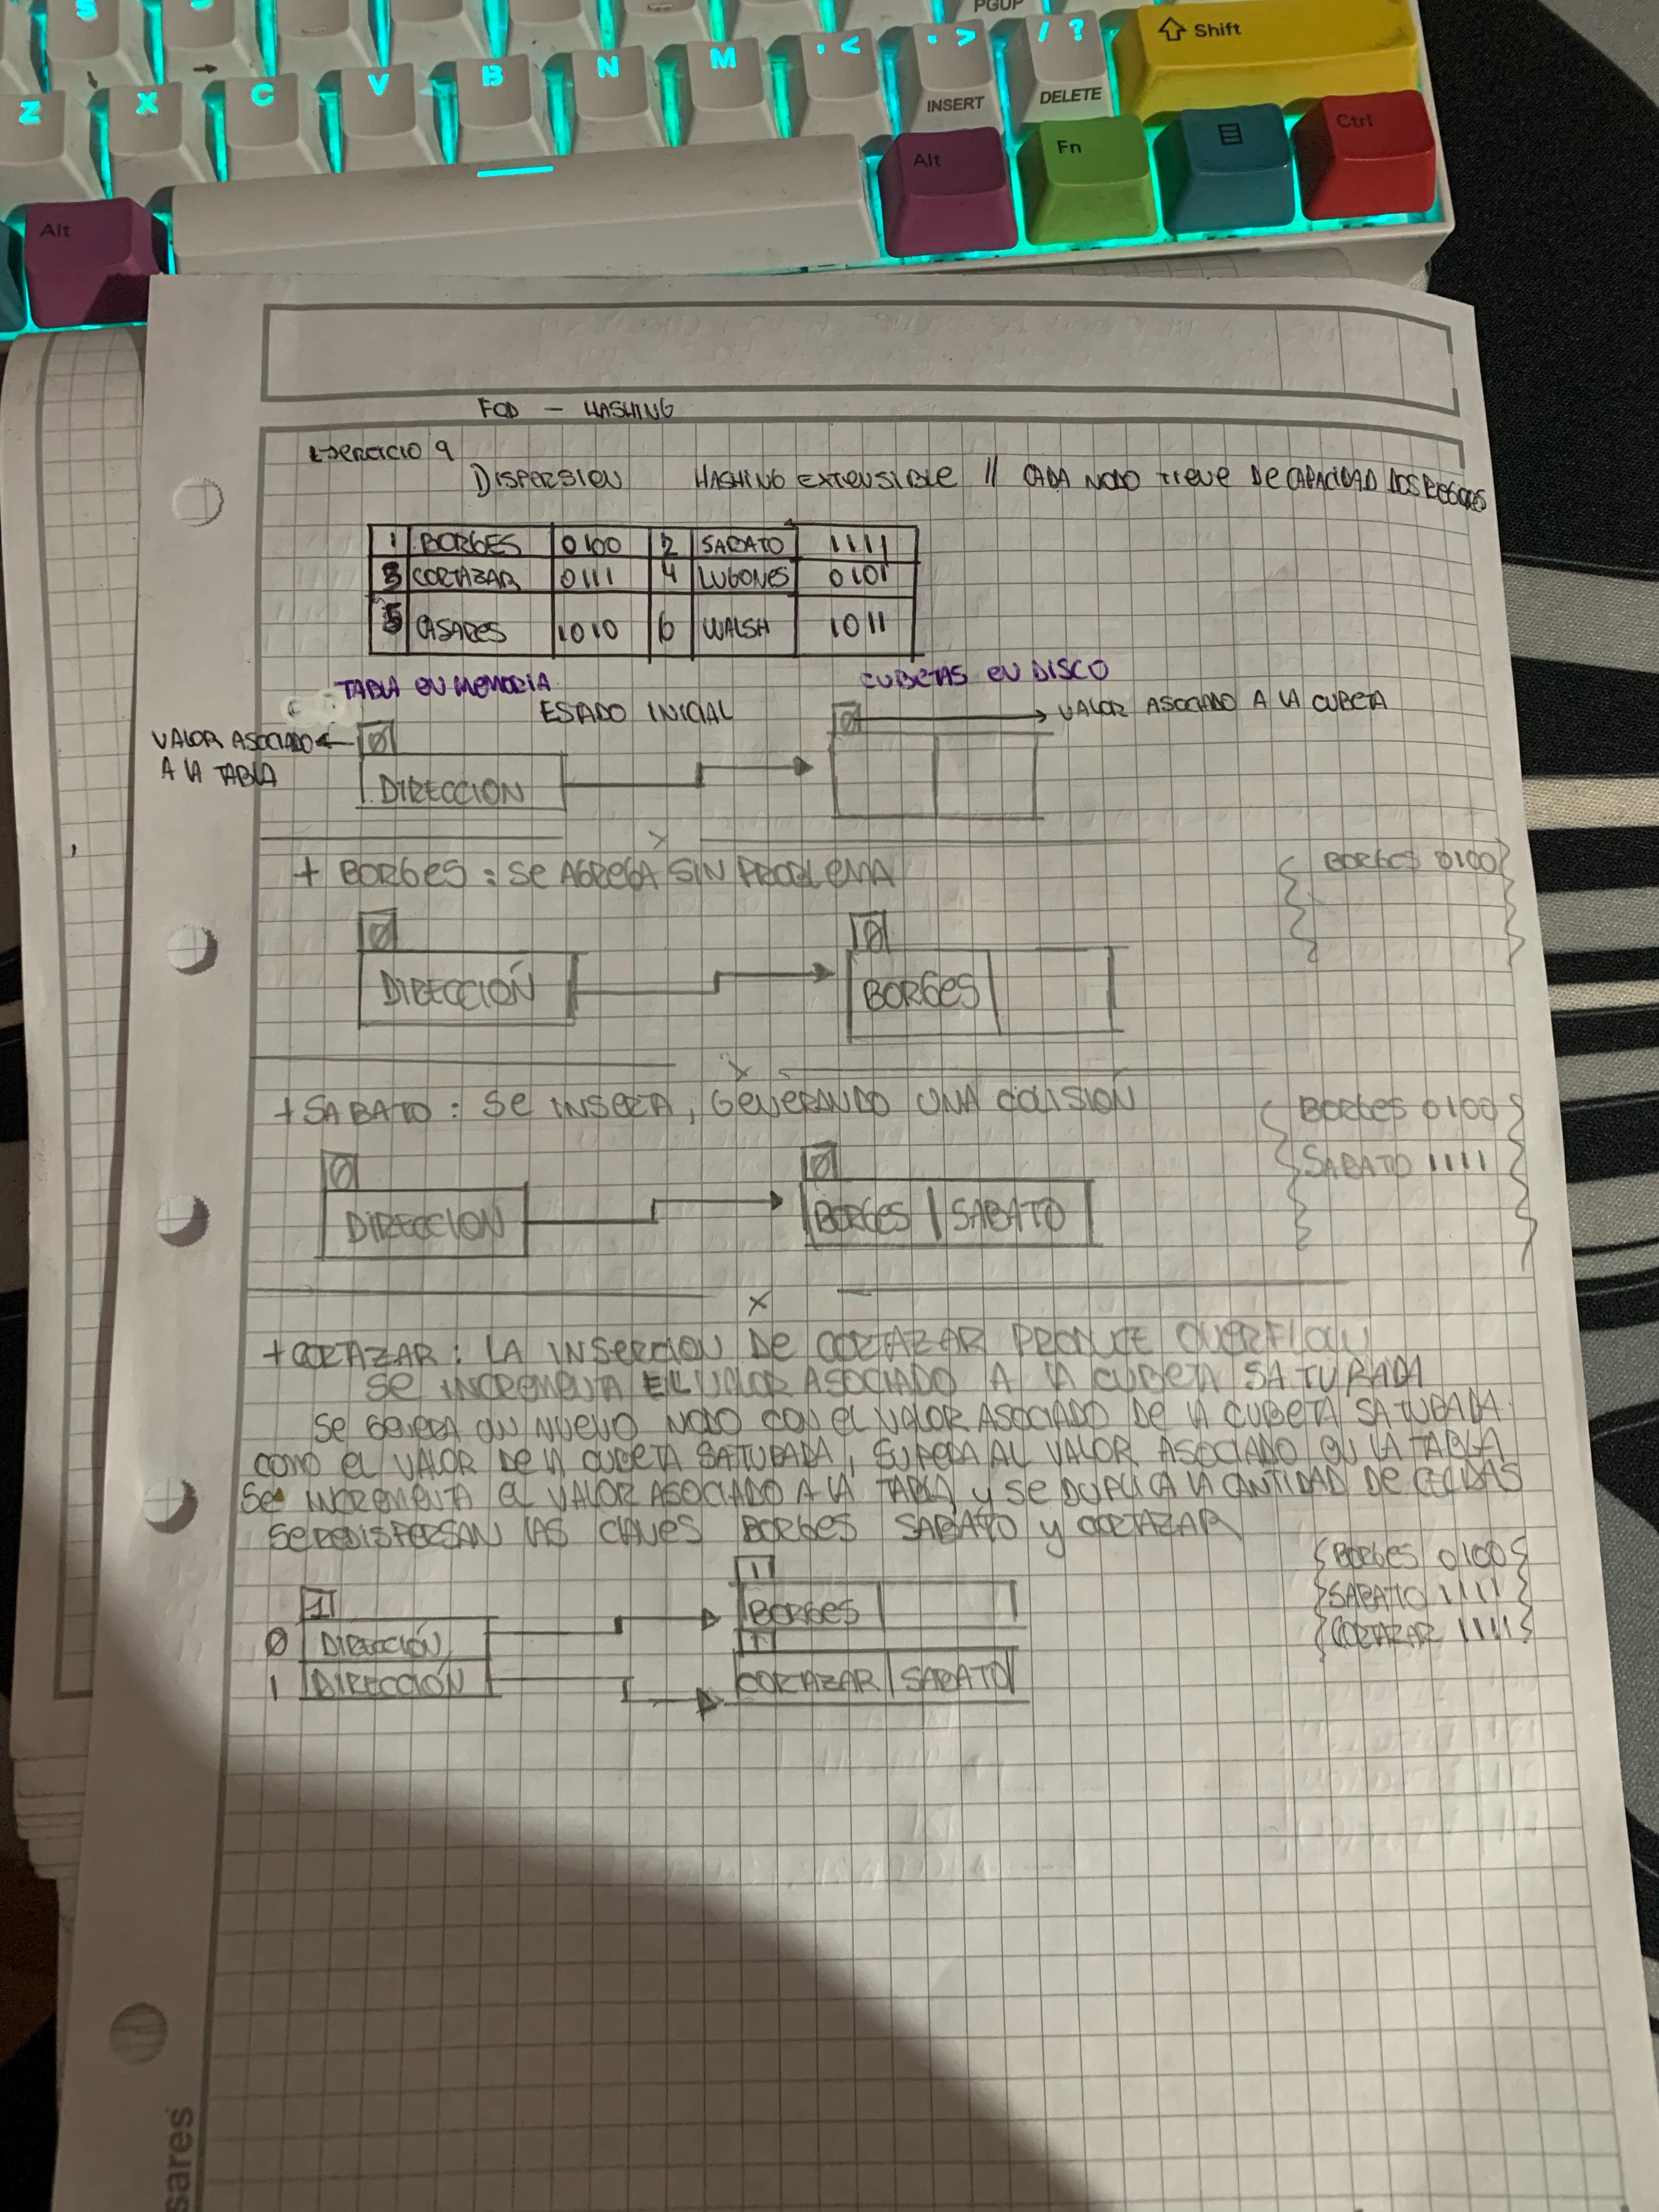 PGUP
S
Z X C V B N M , < . > / ? Shift
INSERT DELETE
Alt Alt Fn Ctrl
FOD - HASHING
EJERCICIO 9
DISPERSION HASHING EXTENSIBLE // CADA NODO TIENE DE CAPACIDAD DOS
1 BORGES 0100 2 SABATO 1111
3 CORTAZAR 0111 4 LUGONES 0101
5 CASARES 1010 6 WALSH 1011
TABLA EN MEMORIA CUBETAS EN DISCO
ESTADO INICIAL 0 → VALOR ASOCIADO A LA CUBETA
VALOR ASOCIADO ← 0
A LA TABLA
DIRECCION
+ BORGES : SE AGREGA SIN PROBLEMA BORGES 0100
0 0
DIRECCIÓN BORGES
+ SABATO : SE INSERTA, GENERANDO UNA COLISIÓN BORGES 0100
SABATO 1111
0 0
DIRECCION BORGES | SABATO
+ CORTAZAR : LA INSERCION DE CORTAZAR PRODUCE OVERFLOW
SE INCREMENTA EL VALOR ASOCIADO A LA CUBETA SATURADA
SE GENERA UN NUEVO NODO CON EL VALOR ASOCIADO DE LA CUBETA SATURADA
COMO EL VALOR DE LA CUBETA SATURADA, SUPERA AL VALOR ASOCIADO EN LA TABLA
SE INCREMENTA EL VALOR ASOCIADO A LA TABLA Y SE DUPLICA LA CANTIDAD DE CELDAS
SE REDISPERSAN LAS CLAVES BORGES SABATO Y CORTAZAR
BORGES 0100
SABATO 1111
CORTAZAR 1111
1 1
0 DIRECCIÓN BORGES
1
1 DIRECCIÓN CORTAZAR | SABATO
sares